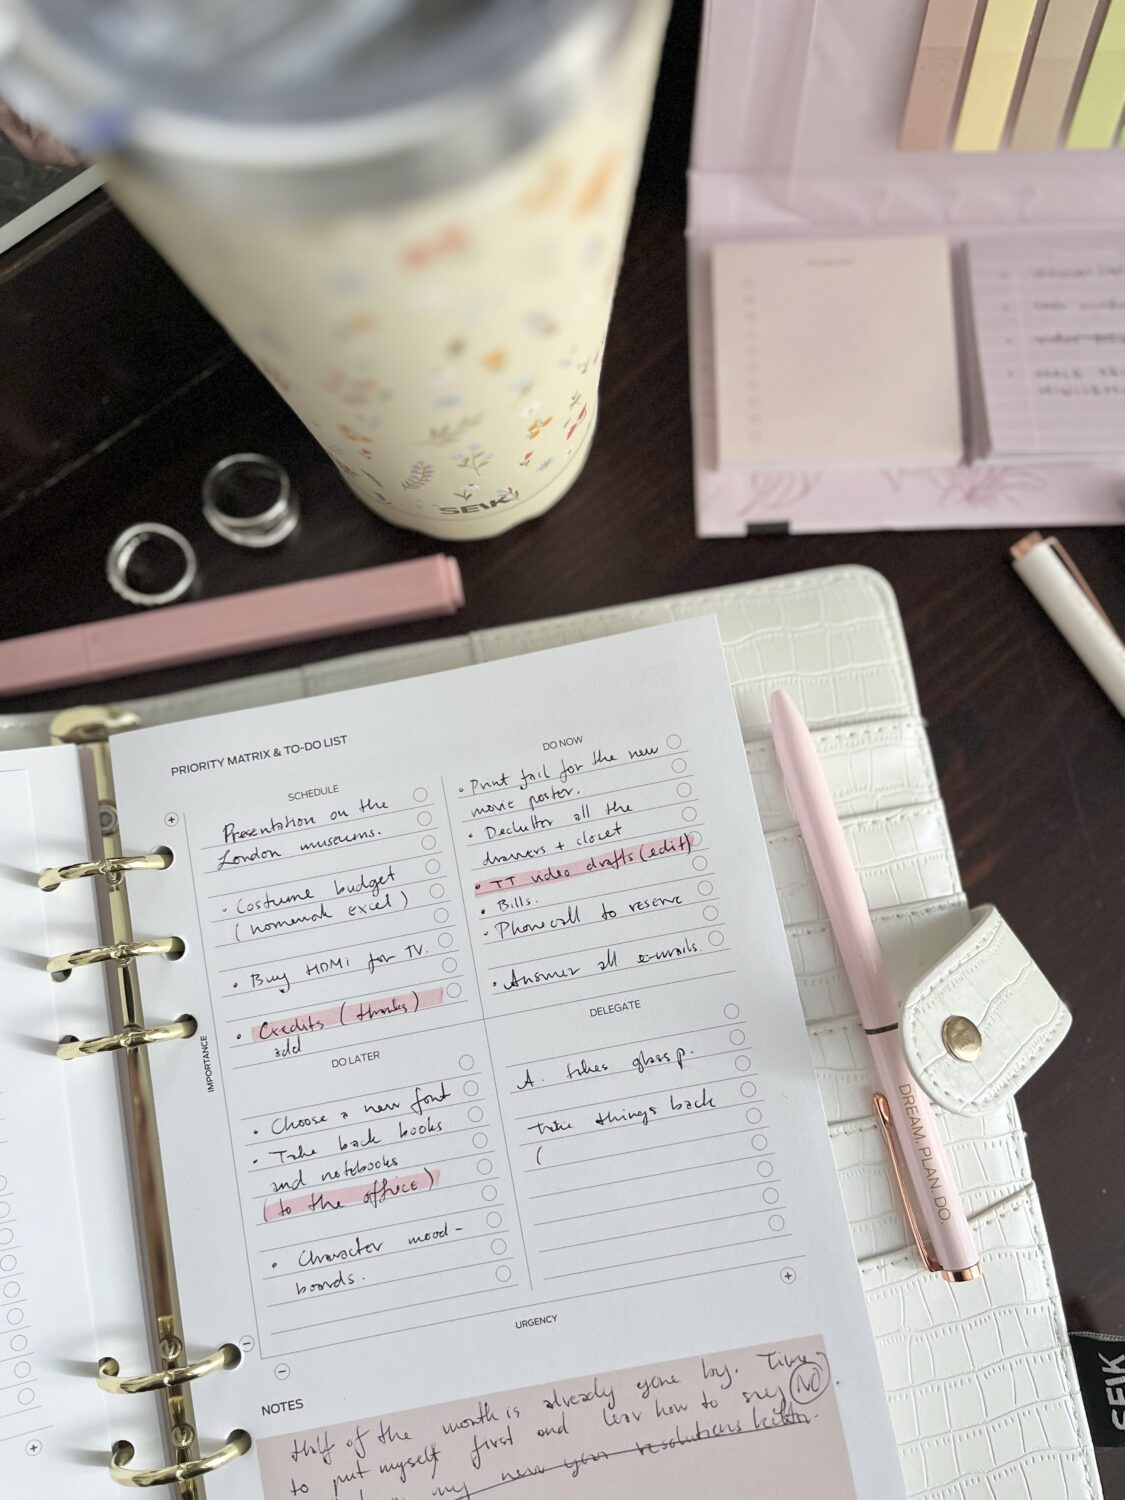 SEIK
PRIORITY MATRIX & TO-DO LIST
SCHEDULE
Presentation on the
London museums.
• Costume budget
(homework excel)
• Buy HDMi for TV.
• Credits (thanks)
add
DO NOW
• Print fail for the new
movie poster.
• Declutter all the
drawers + closet
• TT video drafts (edit)
• Bills.
• Phonecall to reserve
• Answer all e-mails.
DO LATER
• Choose a new font
• Take back books
and notebooks
(to the office)
• Character mood-
boards.
DELEGATE
A. takes glass p.
take things back
(
IMPORTANCE
URGENCY
NOTES
Half of the month is already gone by. Time
to put myself first and lear how to say NO.
my new year resolutions
DREAM.PLAN.DO.
SEIK